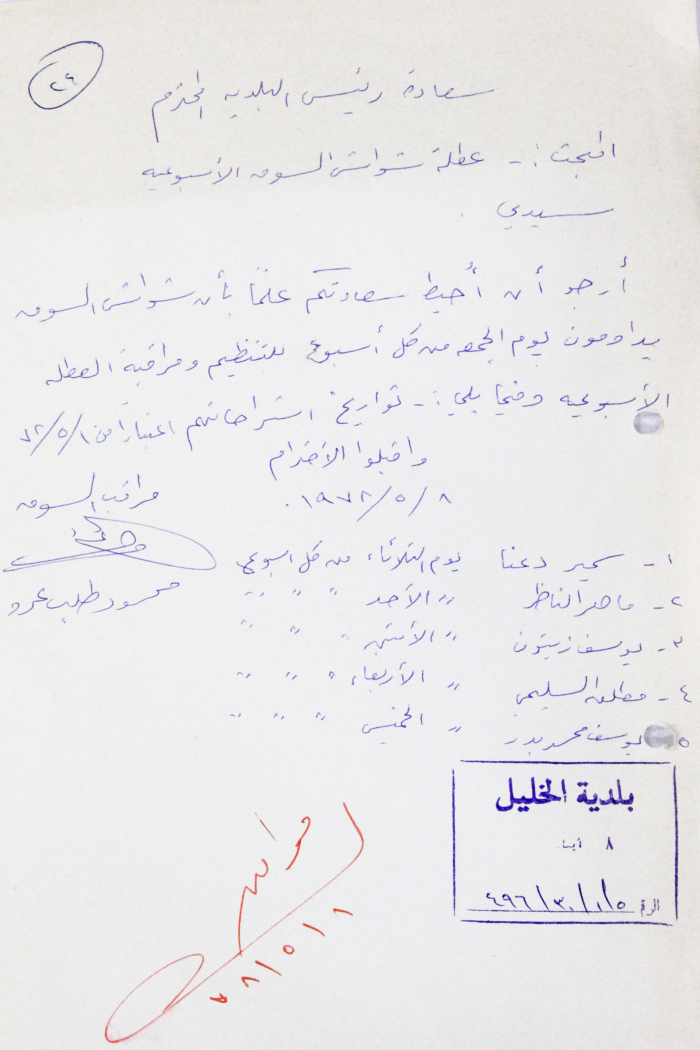 ٢٤
سعادة رئيس البلديه المحترم
المبحث :- عطلة شواش السوق الأسبوعيه
سيدي .
أرجو أن أحيط سعادتكم علماً بأن شواش السوق
يداومون يوم الجمعه من كل أسبوع للتنظيم ومراقبة العطله
الأسبوعيه وفيما يلي :- تواريخ استراحاتهم اعتباراً من ٧٢/٥/١
واقبلوا الأحترام
١٩٧٢/٥/٨ .
مراقب السوق
محمود طلب عمرو
١- سمير دعنا يوم الثلاثاء من كل اسبوع
٢- ماهر الناظر " الأحد " " "
٣- يوسف زيتون " الأثنين " " "
٤- مطلق السليمي " الأربعاء " " "
٥ يوسف محمد بدر " الخميس " " "
بلدية الخليل
٨
الرقم ٤٩٦/٣٠/١/٥